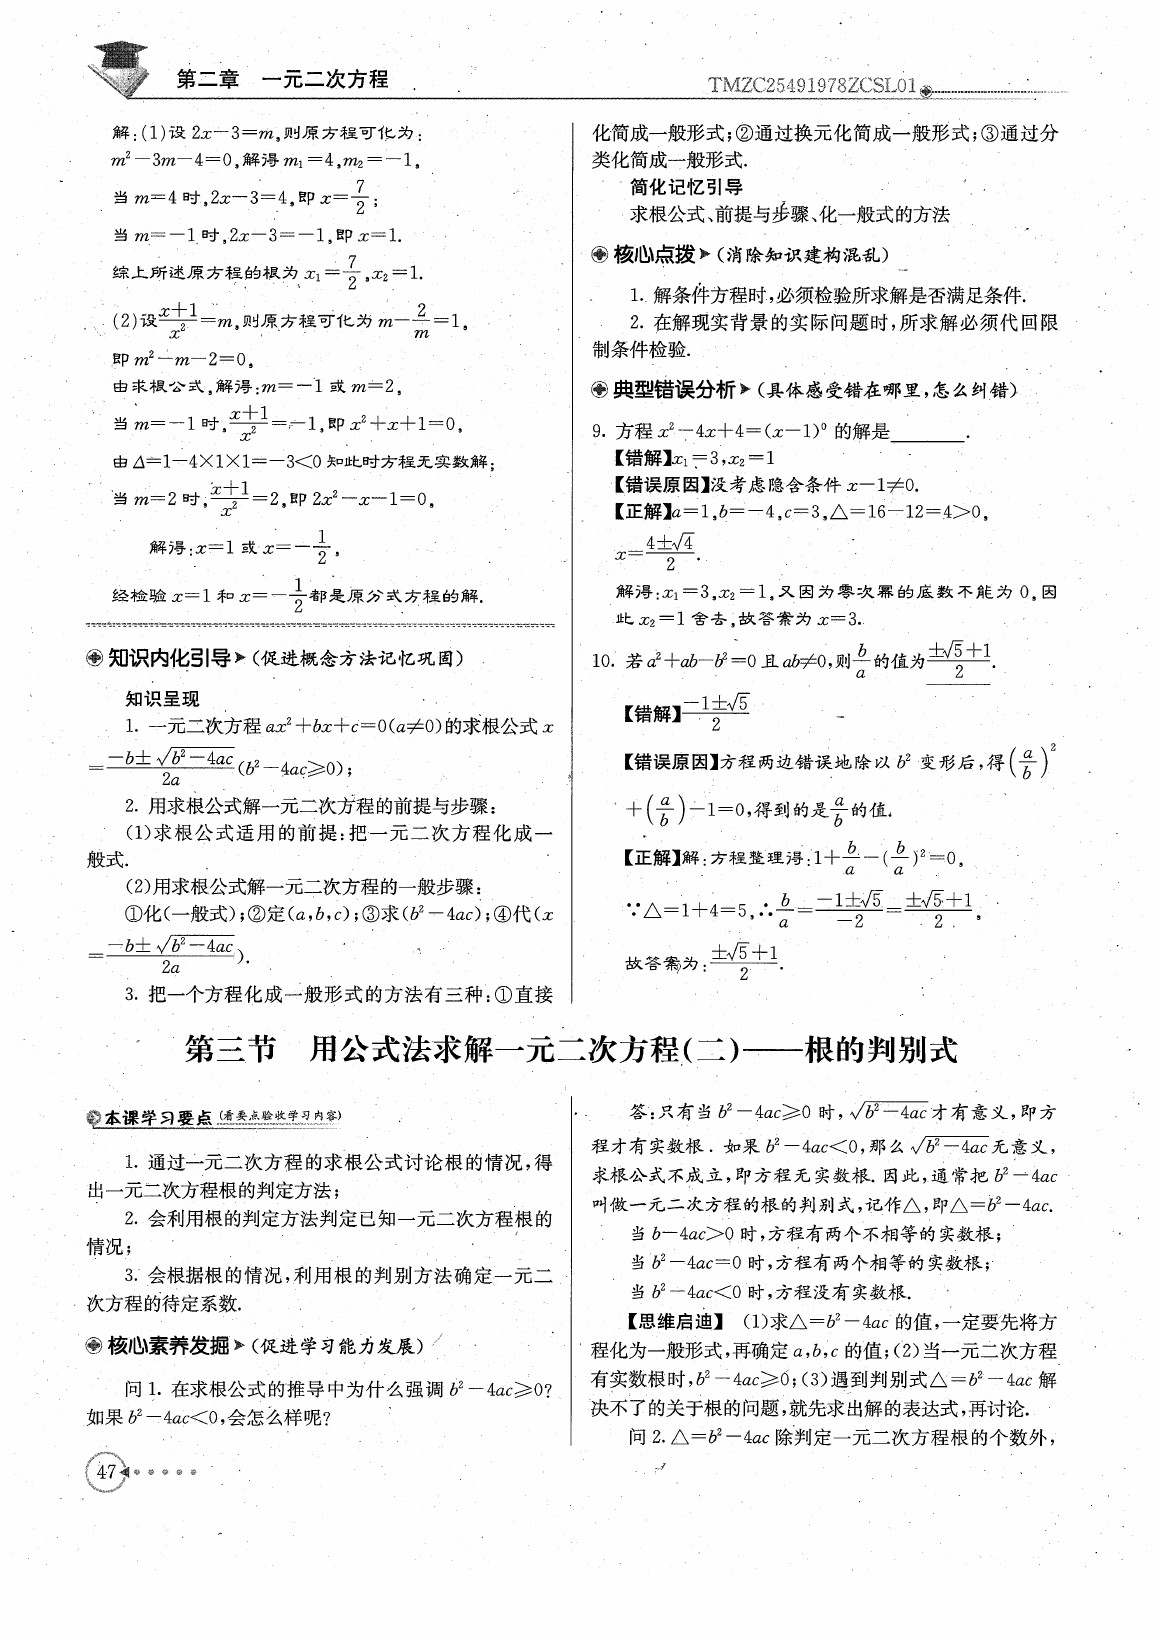 第二章 一元二次方程
TMZC25491978ZCSL01
解:(1)设 2x-3=m,则原方程可化为:
m²-3m-4=0,解得 m₁=4,m₂=-1,
当 m=4 时,2x-3=4,即 x=7/2;
当 m=-1 时,2x-3=-1,即 x=1.
综上所述原方程的根为 x₁=7/2,x₂=1.
(2)设(x+1)/x²=m,则原方程可化为 m-2/m=1,
即 m²-m-2=0,
由求根公式,解得:m=-1 或 m=2,
当 m=-1 时,(x+1)/x²=-1,即 x²+x+1=0,
由 Δ=1-4×1×1=-3<0 知此时方程无实数解;
当 m=2 时,(x+1)/x²=2,即 2x²-x-1=0,
解得:x=1 或 x=-1/2,
经检验 x=1 和 x=-1/2都是原分式方程的解.
知识内化引导(促进概念方法记忆巩固)
知识呈现
1. 一元二次方程 ax²+bx+c=0(a≠0)的求根公式 x
=(-b±√(b²-4ac))/2a(b²-4ac≥0);
2. 用求根公式解一元二次方程的前提与步骤:
(1)求根公式适用的前提:把一元二次方程化成一
般式.
(2)用求根公式解一元二次方程的一般步骤:
①化(一般式);②定(a,b,c);③求(b²-4ac);④代(x
=(-b±√(b²-4ac))/2a).
3. 把一个方程化成一般形式的方法有三种:①直接
化简成一般形式;②通过换元化简成一般形式;③通过分
类化简成一般形式.
简化记忆引导
求根公式、前提与步骤、化一般式的方法
核心点拨(消除知识建构混乱)
1. 解条件方程时,必须检验所求解是否满足条件.
2. 在解现实背景的实际问题时,所求解必须代回限
制条件检验.
典型错误分析(具体感受错在哪里,怎么纠错)
9. 方程 x²-4x+4=(x-1)⁰ 的解是________.
【错解】x₁=3,x₂=1
【错误原因】没考虑隐含条件 x-1≠0.
【正解】a=1,b=-4,c=3,△=16-12=4>0,
x=(4±√4)/2.
解得:x₁=3,x₂=1,又因为零次幂的底数不能为 0,因
此 x₂=1 舍去,故答案为 x=3.
10. 若 a²+ab-b²=0 且 ab≠0,则b/a的值为(±√5+1)/2.
【错解】(-1±√5)/2
【错误原因】方程两边错误地除以 b² 变形后,得(a/b)²
+(a/b)-1=0,得到的是a/b的值.
【正解】解:方程整理得:1+b/a-(b/a)²=0,
∵△=1+4=5,∴b/a=(-1±√5)/-2=(±√5+1)/2,
故答案为:(±√5+1)/2.
第三节 用公式法求解一元二次方程(二)——根的判别式
本课学习要点(看要点验收学习内容)
1. 通过一元二次方程的求根公式讨论根的情况,得
出一元二次方程根的判定方法;
2. 会利用根的判定方法判定已知一元二次方程根的
情况;
3. 会根据根的情况,利用根的判别方法确定一元二
次方程的待定系数.
核心素养发掘(促进学习能力发展)
问 1. 在求根公式的推导中为什么强调 b²-4ac≥0?
如果 b²-4ac<0,会怎么样呢?
答:只有当 b²-4ac≥0 时,√(b²-4ac)才有意义,即方
程才有实数根. 如果 b²-4ac<0,那么√(b²-4ac)无意义,
求根公式不成立,即方程无实数根. 因此,通常把 b²-4ac
叫做一元二次方程的根的判别式,记作△,即△=b²-4ac.
当 b-4ac>0 时,方程有两个不相等的实数根;
当 b²-4ac=0 时,方程有两个相等的实数根;
当 b²-4ac<0 时,方程没有实数根.
【思维启迪】 (1)求△=b²-4ac 的值,一定要先将方
程化为一般形式,再确定 a,b,c 的值;(2)当一元二次方程
有实数根时,b²-4ac≥0;(3)遇到判别式△=b²-4ac 解
决不了的关于根的问题,就先求出解的表达式,再讨论.
问 2. △=b²-4ac 除判定一元二次方程根的个数外,
47